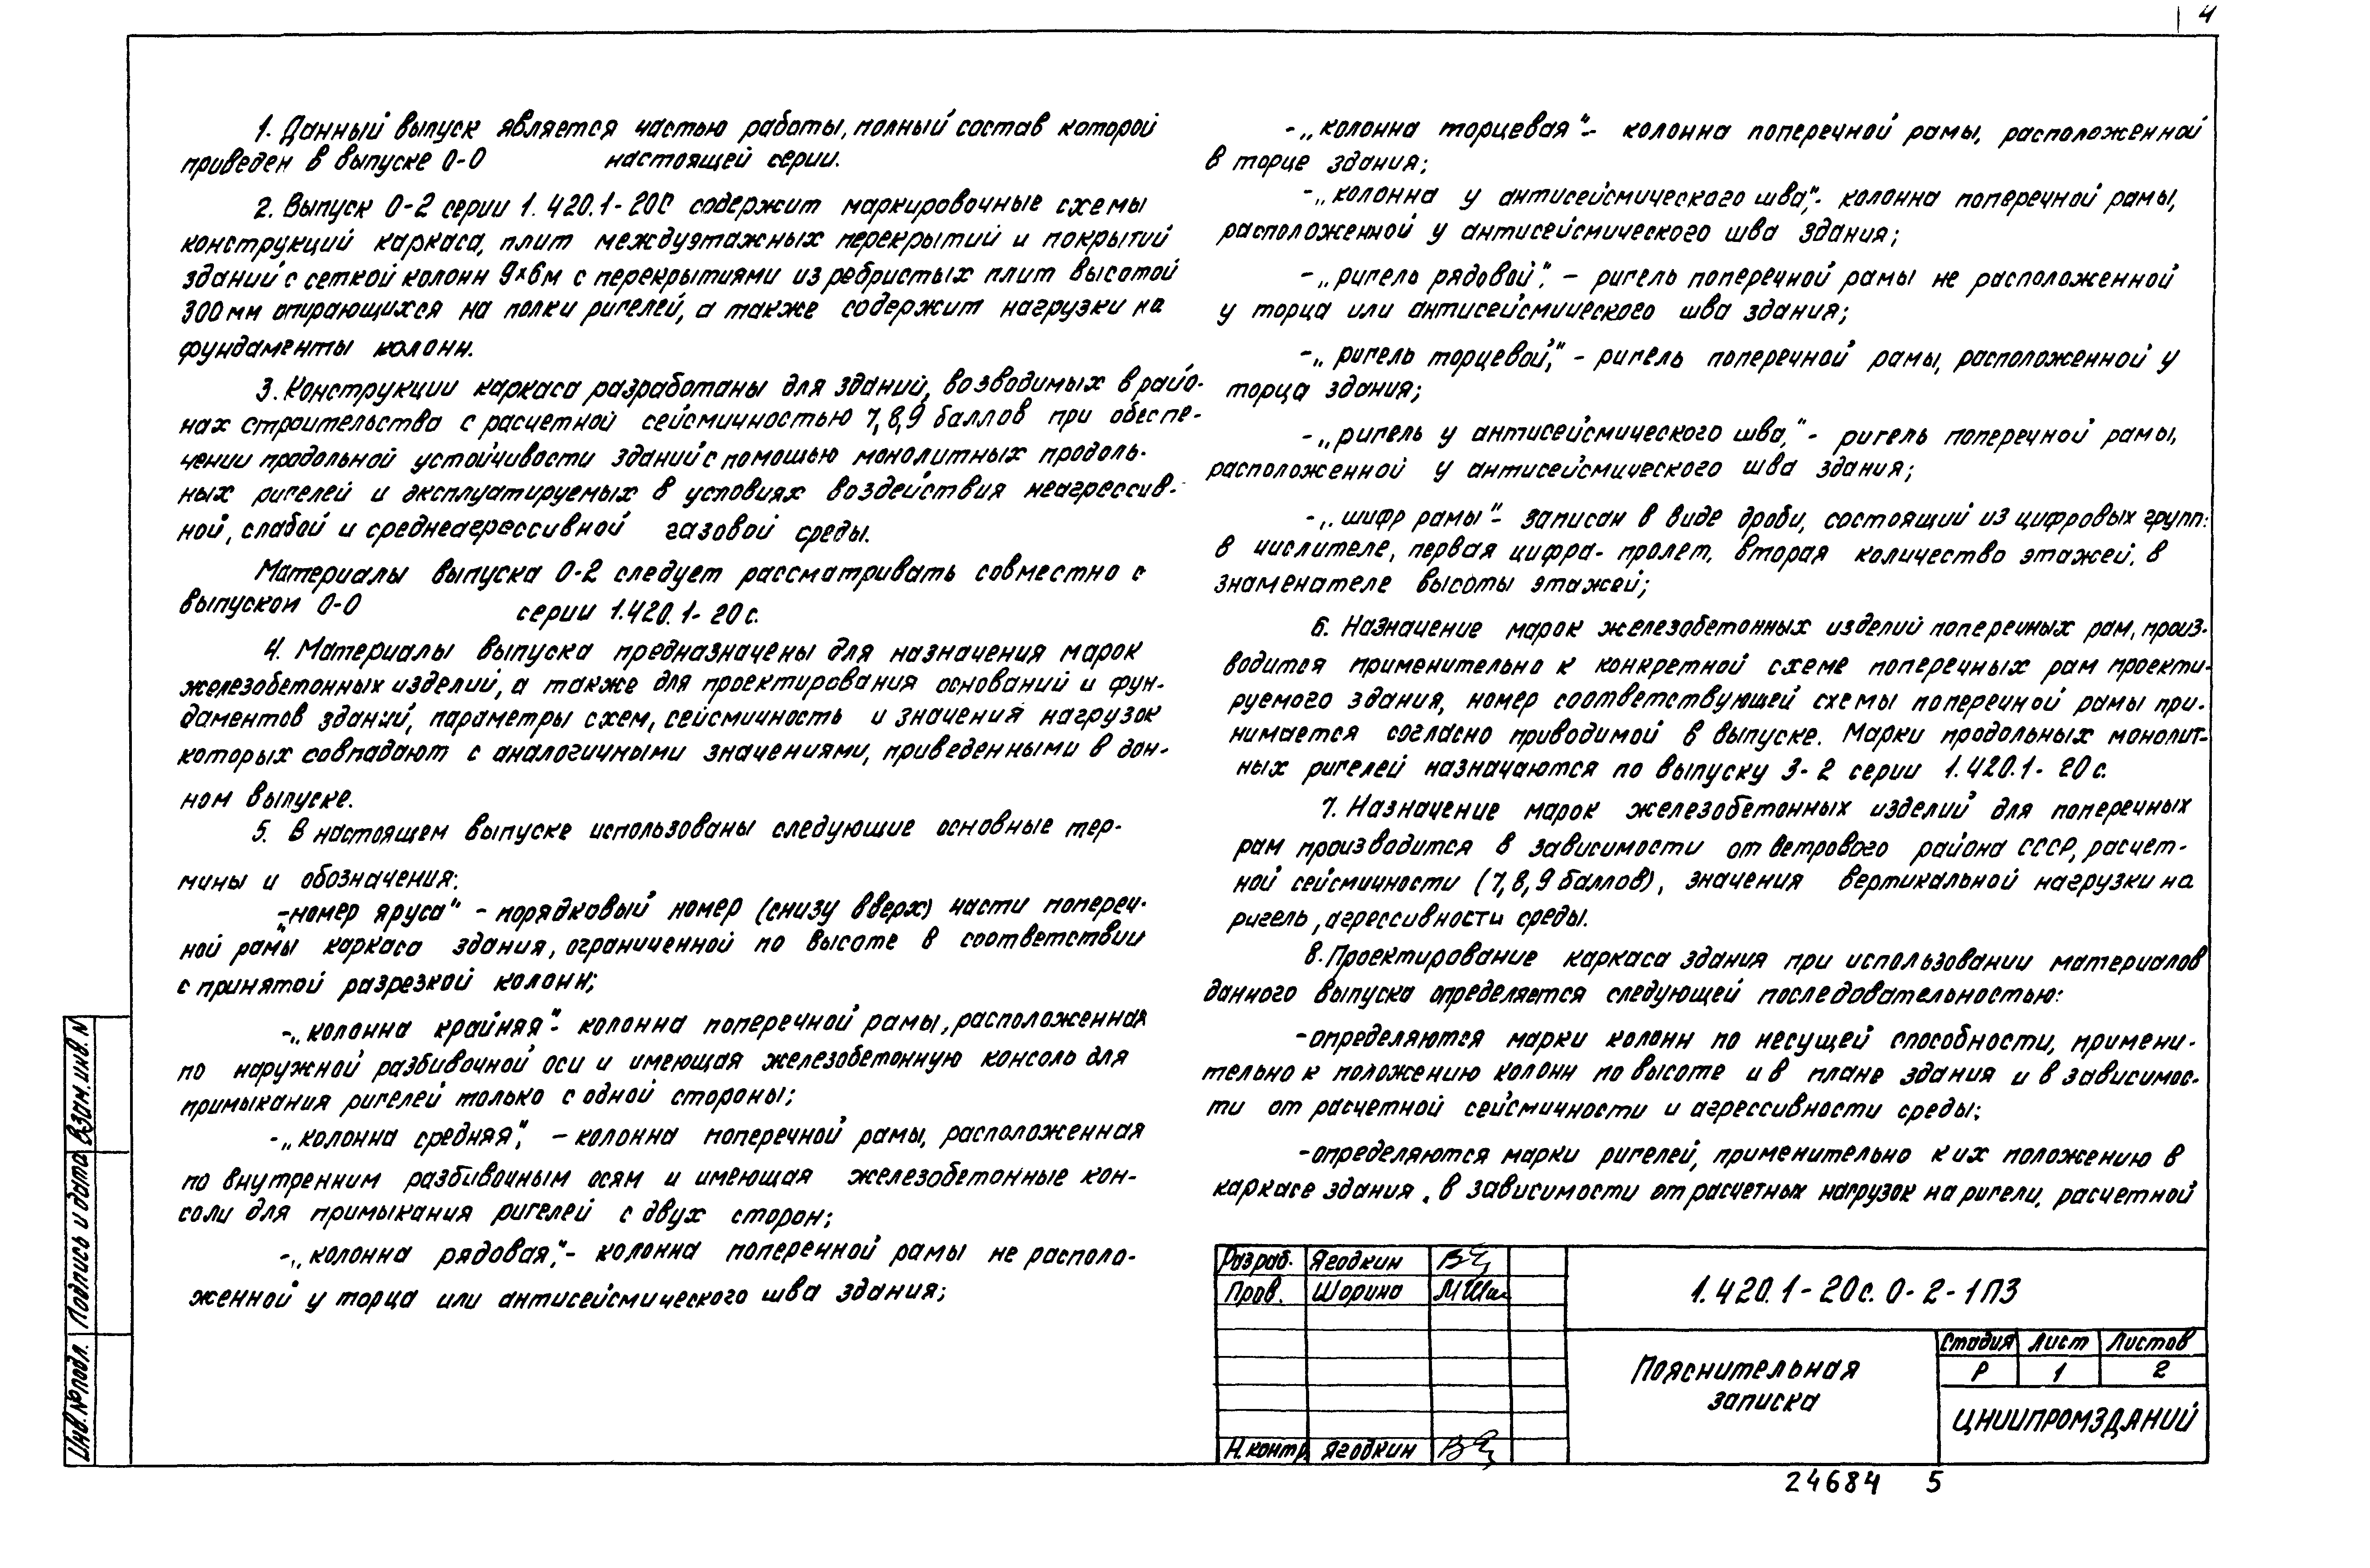 4
1. Данный выпуск является частью работы, полный состав которой
приведен в выпуске 0-0 настоящей серии.
2. Выпуск 0-2 серии 1.420.1-20С содержит маркировочные схемы
конструкций каркаса, плит междуэтажных перекрытий и покрытий
зданий с сеткой колонн 9×6м с перекрытиями из ребристых плит высотой
300мм опирающихся на полки ригелей, а также содержит нагрузки на
фундаменты колонн.
3. Конструкции каркаса разработаны для зданий, возводимых в райо-
нах строительства с расчетной сейсмичностью 7,8,9 баллов при обеспе-
чении продольной устойчивости зданий с помошью монолитных продоль-
ных ригелей и эксплуатируемых в условиях воздействия неагрессив-
ной, слабой и среднеагрессивной газовой среды.
Материалы выпуска 0-2 следует рассматривать совместно с
выпуском 0-0 серии 1.420.1-20с.
4. Материалы выпуска предназначены для назначения марок
железобетонных изделий, а также для проектирования оснований и фун-
даментов зданий, параметры схем, сейсмичность и значения нагрузок
которых совпадают с аналогичными значениями, приведенными в дан-
ном выпуске.
5. В настоящем выпуске использованы следующие основные тер-
мины и обозначения:
-„номер яруса" - порядковый номер (снизу вверх) части попереч-
ной рамы каркаса здания, ограниченной по высоте в соответствии
с принятой разрезкой колонн;
-„колонна крайняя"- колонна поперечной рамы, расположенная
по наружной разбивочной оси и имеющая железобетонную консоль для
примыкания ригелей только с одной стороны;
-„колонна средняя", - колонна поперечной рамы, расположенная
по внутренним разбивочным осям и имеющая железобетонные кон-
соли для примыкания ригелей с двух сторон;
-„колонна рядовая,"- колонна поперечной рамы не располо-
женной у торца или антисейсмического шва здания;
-„колонна торцевая"- колонна поперечной рамы, расположенной
в торце здания;
-„колонна у антисейсмического шва,"- колонна поперечной рамы,
расположенной у антисейсмического шва здания;
-„ригель рядовой". - ригель поперечной рамы не расположенной
у торца или антисейсмического шва здания;
-„ригель торцевой," - ригель поперечной рамы, расположенной у
торца здания;
-„ригель у антисейсмического шва," - ригель поперечной рамы,
расположенной у антисейсмического шва здания;
-„шифр рамы"- записан в виде дроби, состоящий из цифровых групп:
в числителе, первая цифра- пролет, вторая количество этажей, в
знаменателе высоты этажей;
6. Назначение марок железобетонных изделий поперечных рам, произ-
водится применительно к конкретной схеме поперечных рам проекти-
руемого здания, номер соответствующей схемы поперечной рамы при-
нимается согласно приводимой в выпуске. Марки продольных монолит-
ных ригелей назначаются по выпуску 3-2 серии 1.420.1-20с.
7. Назначение марок железобетонных изделий для поперечных
рам производится в зависимости от ветрового района СССР, расчет-
ной сейсмичности (7,8,9 баллов), значения вертикальной нагрузки на
ригель, агрессивности среды.
8. Проектирование каркаса здания при использовании материалов
данного выпуска определяется следующей последовательностью:
-определяются марки колонн по несущей способности, примени-
тельно к положению колонн по высоте и в плане здания и в зависимос-
ти от расчетной сейсмичности и агрессивности среды;
-определяются марки ригелей, применительно к их положению в
каркасе здания, в зависимости от расчетных нагрузок на ригели, расчетной
Разраб. Ягодкин
Пров. Шорина
Н.контр. Ягодкин
1.420.1-20с. 0-2-1ПЗ
Пояснительная
записка
Стадия Лист Листов
Р 1 2
ЦНИИПРОМЗДАНИЙ
24684 5
Взам.инв.N
Подпись и дата
Инв.№подл.